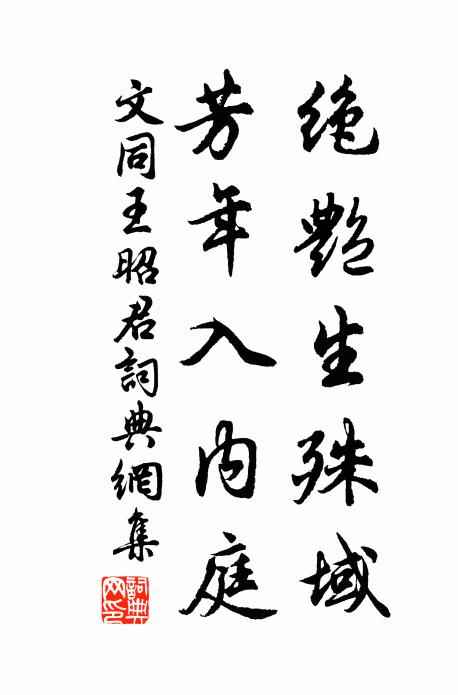 絶艷生殊域
芳年入内庭
文同王昭君詞典網集
詞典網印